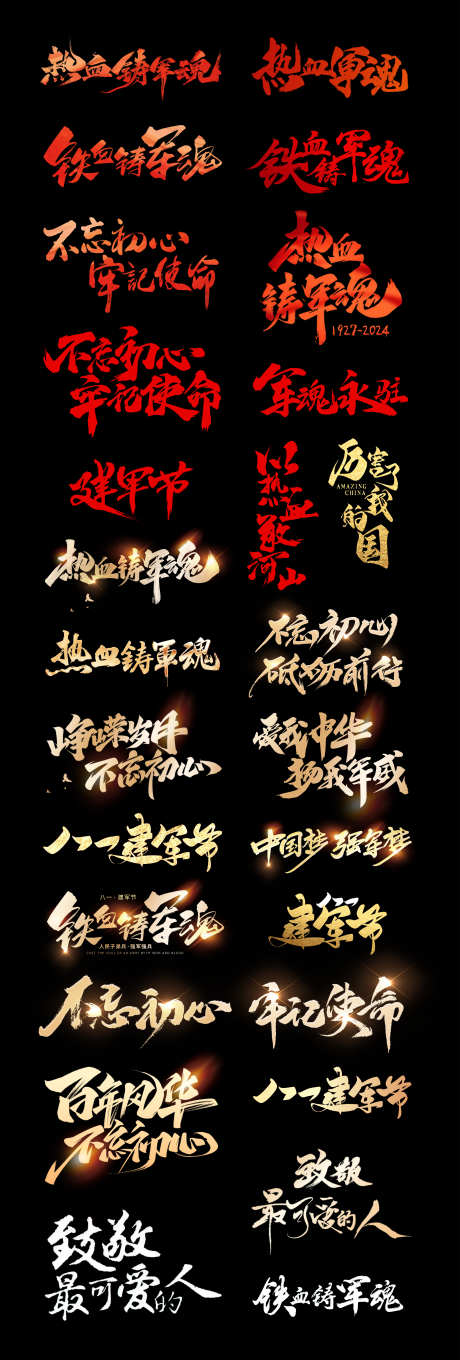 热血铸军魂
热血軍魂
铁血铸军魂
铁血铸軍魂
不忘初心
牢記使命
热血
铸军魂
1927-2024
不忘初心
牢记使命
军魂永驻
建军节
以
热
血
敬
河
山
厉害了
我
的
国
AMAZING
CHINA
热血铸军魂
热血鑄軍魂
不忘初心
砥砺前行
峥嵘岁月
不忘初心
爱我中华
扬我军威
八一建军节
中国梦 强军梦
八一·建军节
铁血铸军魂
人民子弟兵·强军强兵
八一
建军节
不忘初心
牢记使命
百年风华
不忘初心
八一建军节
致敬
最可爱的人
致敬
最可爱的人
铁血铸军魂